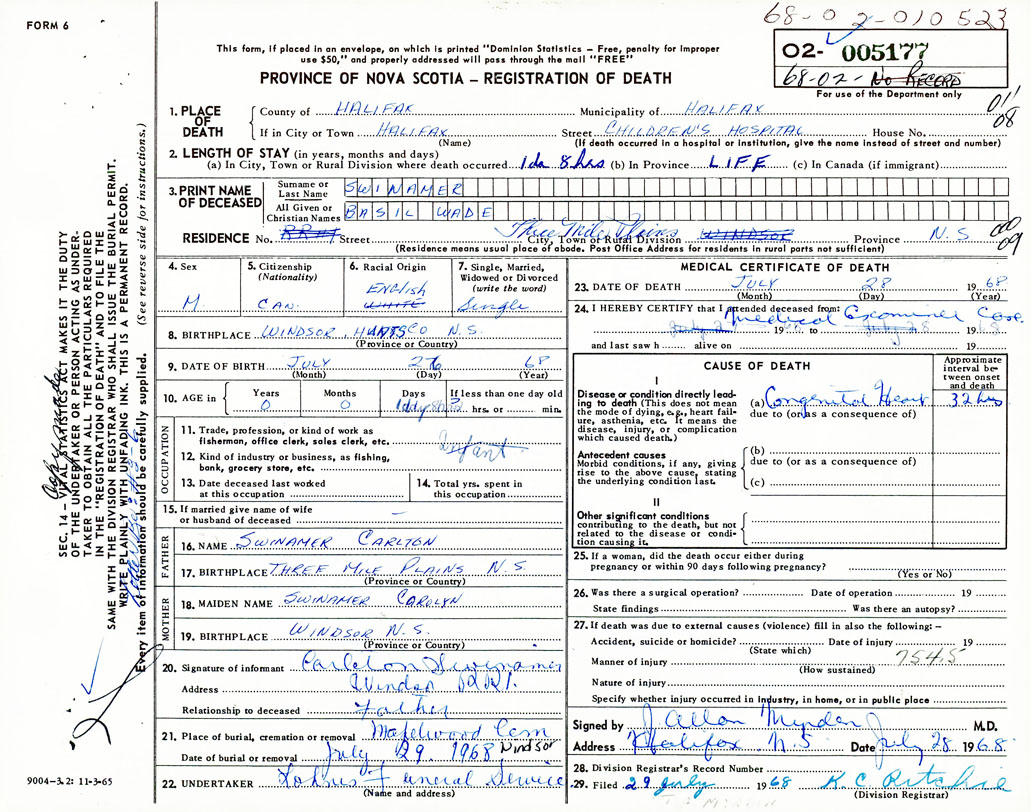 68-02-010523
FORM 6
This form, if placed in an envelope, on which is printed "Dominion Statistics – Free, penalty for improper
use $50," and properly addressed will pass through the mail "FREE"
02- 005177
68-02- No RECORD
For use of the Department only
PROVINCE OF NOVA SCOTIA – REGISTRATION OF DEATH
011
08
1. PLACE OF DEATH County of HALIFAX Municipality of HALIFAX
If in City or Town HALIFAX Street CHILDREN'S HOSPITAL House No.
(Name) (If death occurred in a hospital or institution, give the name instead of street and number)
2. LENGTH OF STAY (in years, months and days)
(a) In City, Town or Rural Division where death occurred 1da 8hrs (b) In Province LIFE (c) In Canada (if immigrant)
3. PRINT NAME OF DECEASED Surname or Last Name SWINAMER
All Given or Christian Names BASIL WADE
RESIDENCE No. RR#1 Street Three Mile Plains City, Town or Rural Division WINDSOR Province N.S
(Residence means usual place of abode. Post Office Address for residents in rural parts not sufficient)
09
4. Sex M
5. Citizenship (Nationality) CAN.
6. Racial Origin ENGLISH WHITE
7. Single, Married, Widowed or Divorced (write the word) Single
8. BIRTHPLACE WINDSOR HANTS CO N.S.
(Province or Country)
9. DATE OF BIRTH JULY 26 68
(Month) (Day) (Year)
10. AGE in Years 0 Months 0 Days 1 day If less than one day old hrs. or min.
OCCUPATION
11. Trade, profession or kind of work as fisherman, office clerk, sales clerk, etc. Infant
12. Kind of industry or business, as fishing, bank, grocery store, etc.
13. Date deceased last worked at this occupation
14. Total yrs. spent in this occupation
15. If married give name of wife or husband of deceased –
FATHER
16. NAME SWINAMER CARLTON
17. BIRTHPLACE THREE MILE PLAINS N.S.
(Province or Country)
MOTHER
18. MAIDEN NAME SWINAMER CAROLYN
19. BIRTHPLACE WINDSOR N.S.
(Province or Country)
20. Signature of informant Carleton Swinamer
Address Windsor RR1.
Relationship to deceased Father
21. Place of burial, cremation or removal Maplewood Cem
Windsor
Date of burial or removal July 29 1968
22. UNDERTAKER Lohnes Funeral Service
(Name and address)
MEDICAL CERTIFICATE OF DEATH
23. DATE OF DEATH JULY 28 1968
(Month) (Day) (Year)
24. I HEREBY CERTIFY that I attended deceased from: Medical Examiner Case
19 to 19
and last saw h alive on 19
CAUSE OF DEATH
Approximate interval between onset and death
I
Disease or condition directly leading to death (This does not mean the mode of dying, e.g., heart failure, asthenia, etc. It means the disease, injury, or complication which caused death.)
(a) Congenital Heart 32 hrs
due to (or as a consequence of)
Antecedent causes
Morbid conditions, if any, giving rise to the above cause, stating the underlying condition last.
(b)
due to (or as a consequence of)
(c)
II
Other significant conditions contributing to the death, but not related to the disease or condition causing it.
25. If a woman, did the death occur either during pregnancy or within 90 days following pregnancy?
(Yes or No)
26. Was there a surgical operation? Date of operation 19
State findings Was there an autopsy?
27. If death was due to external causes (violence) fill in also the following: –
Accident, suicide or homicide? Date of injury 19
(State which)
Manner of injury 754.5
(How sustained)
Nature of injury
Specify whether injury occurred in industry, in home, or in public place
Signed by J Allan Myrden M.D.
Address Halifax N.S Date July 28 1968.
28. Division Registrar's Record Number
29. Filed 29 July 1968 K.C. Ritchie
(Division Registrar)
SEC. 14 – VITAL STATISTICS ACT MAKES IT THE DUTY
OF THE UNDERTAKER OR PERSON ACTING AS UNDER-
TAKER TO OBTAIN ALL THE PARTICULARS REQUIRED
IN THE "REGISTRATION OF DEATH" AND TO FILE THE
SAME WITH THE DIVISION REGISTRAR WHO SHALL ISSUE THE BURIAL PERMIT.
WRITE PLAINLY WITH UNFADING INK. THIS IS A PERMANENT RECORD.
Every item of information should be carefully supplied. (See reverse side for instructions.)
9004-3.2: 11-3-65